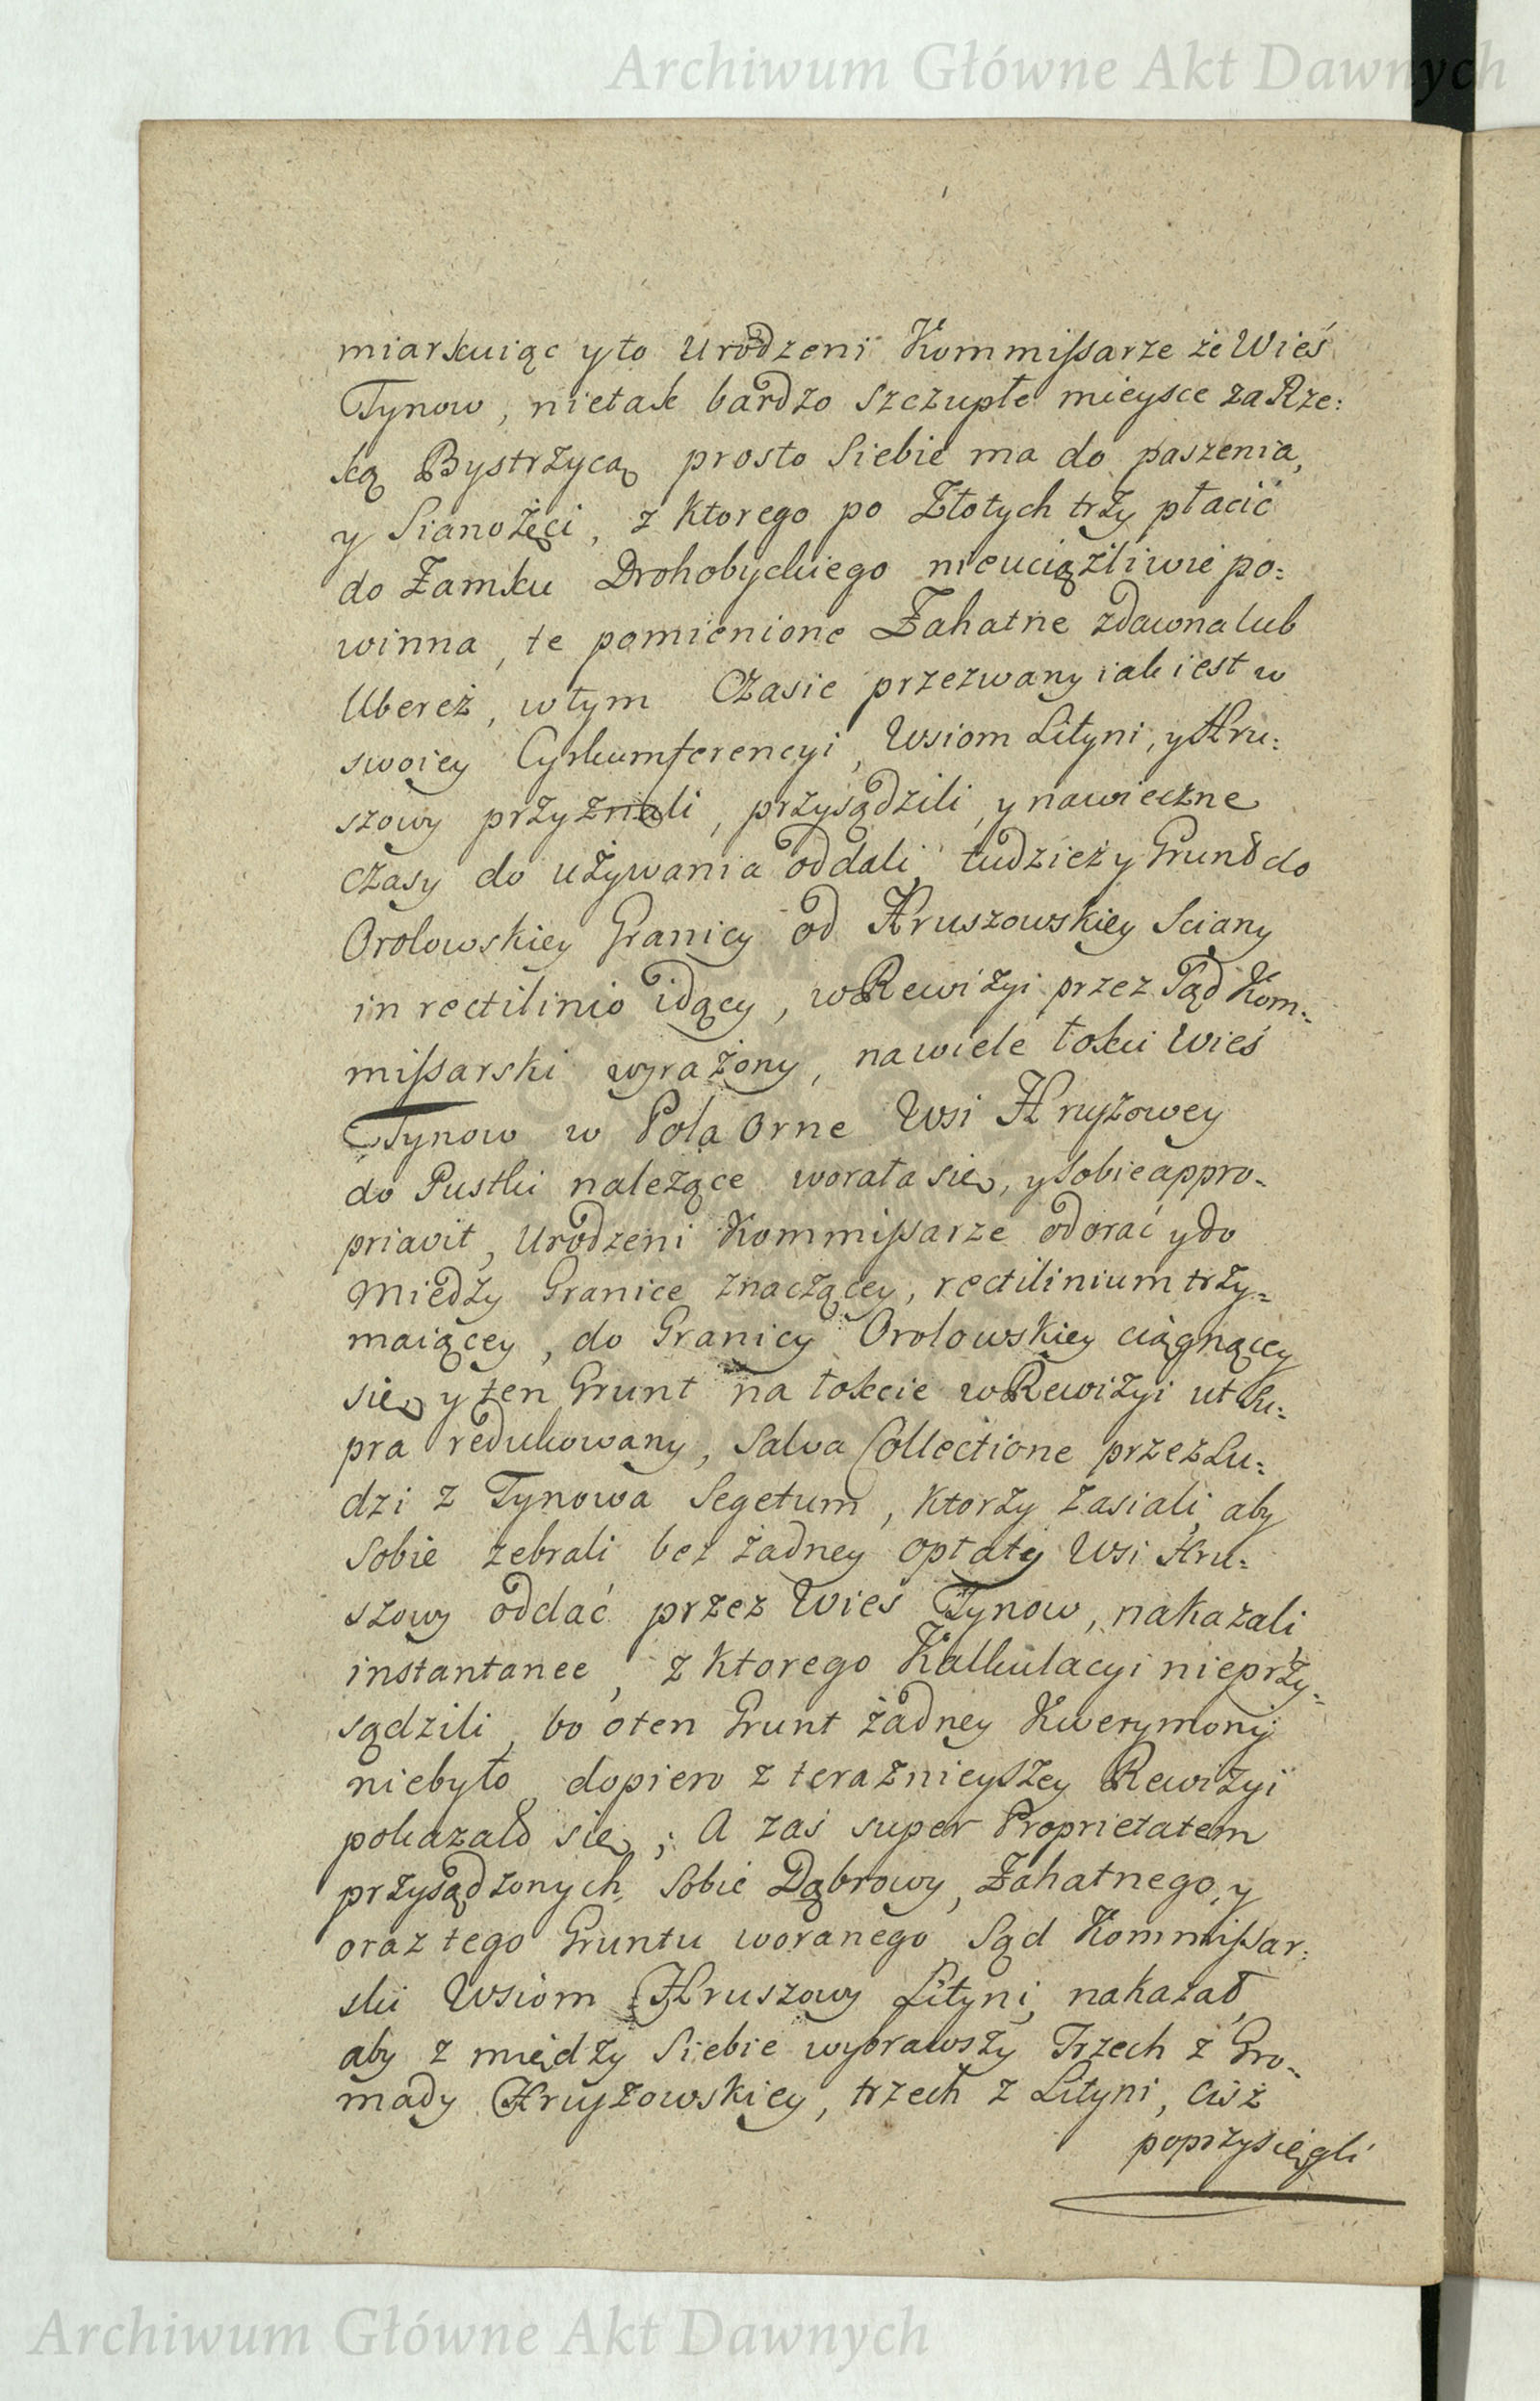 Archiwum Główne Akt Dawnych
miarkuiąc y to Urodzeni Kommißarze że Wieś
Tynow, nietak bardzo szczupłe mieysce za Rze:
ką Bystrzycą prosto Siebie ma do paszenia,
y Sianożęci, z Ktorego po Złotych trzy płacić
do Zamku Drohobyckiego nieuciążliwie po:
winna, te pomienione Zahatne zdawna lub
Ubereż, wtym Czasie przezwany iak iest w
swoiey Cyrkumferencyi, Wsiom Lityni, y Hru:
szowy przyznali, przysądzili, y nawieczne
czasy do używania oddali, tudzież y Grunt do
Orolowskiey Granicy od Hruszowskiey Sciany
in rectilinio idący, w Rewizyi przez Sąd Kom:
mißarski wyrażony, nawiele łokci Wieś
Tynow w Pola Orne Wsi Hruszowey
do Pustki należące worała się, y Sobie appro-
priavit, Urodzeni Kommißarze odorać y do
Miedzy Granice znaczącey, rectilinium trzy-
maiącey, do Granicy Orolowskiey ciągnącey
się y ten Grunt na łokcie w Rewizyi ut Su:
pra redukowany, Salva Collectione przez Lu:
dzi z Tynowa Segetum, Ktorzy zasiali, aby
Sobie zebrali bez żadney opłaty Wsi Hru:
szowy oddać przez Wieś Tynow, nakazali
instantanee, z Ktorego Kalkulacyi nieprzy-
sądzili, bo oten Grunt żadney Kwerymonij
niebyło, dopiero z teraznieyszey Rewizyi
pokazało się; A zaś super Proprietatem
przysądzonych Sobie Dąbrowy, Zahatnego, y
oraz tego Gruntu woranego Sąd Kommißar:
ski Wsiom Hruszowy Lityni, nakazał,
aby z między Siebie wybrawszy Trzech z Gro-
mady Hruszowskiey, trzech z Lityni, Ciż
poprzysięgli
Archiwum Główne Akt Dawnych